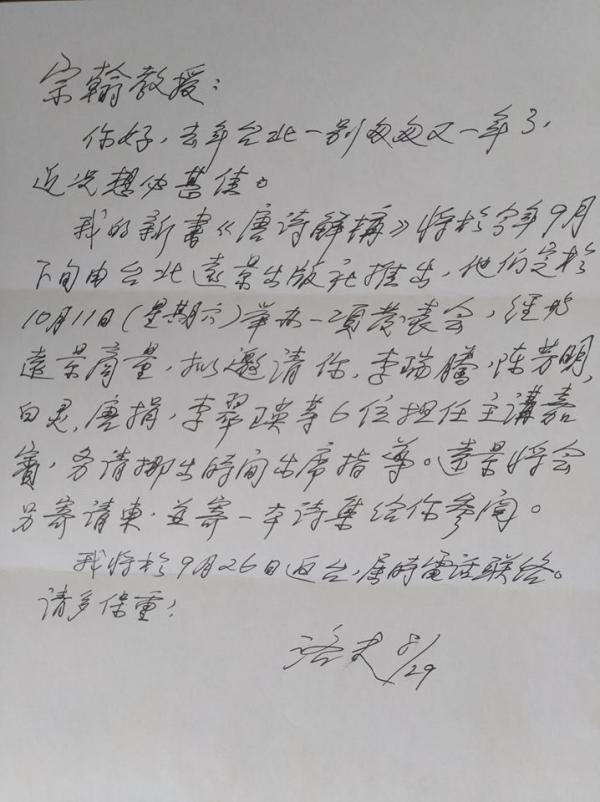 宗翰教授：
你好，去年台北一别匆匆又一年了，
近况想必甚佳。
我的新書《唐诗解構》将於今年9月
下旬由台北遠景出版社推出，他们定於
10月11日(星期六)举办一项发表会，经与
遠景商量，拟邀请你，李瑞騰，陈芳明，
白灵，唐捐，李翠瑛等6位担任主講嘉
賓，务请挪出時间出席指導。遠景将会
另寄请柬，並寄一本诗集给你参阅。
我将於9月26日返台，届時電话联络。
请多保重！
洛夫 8/29